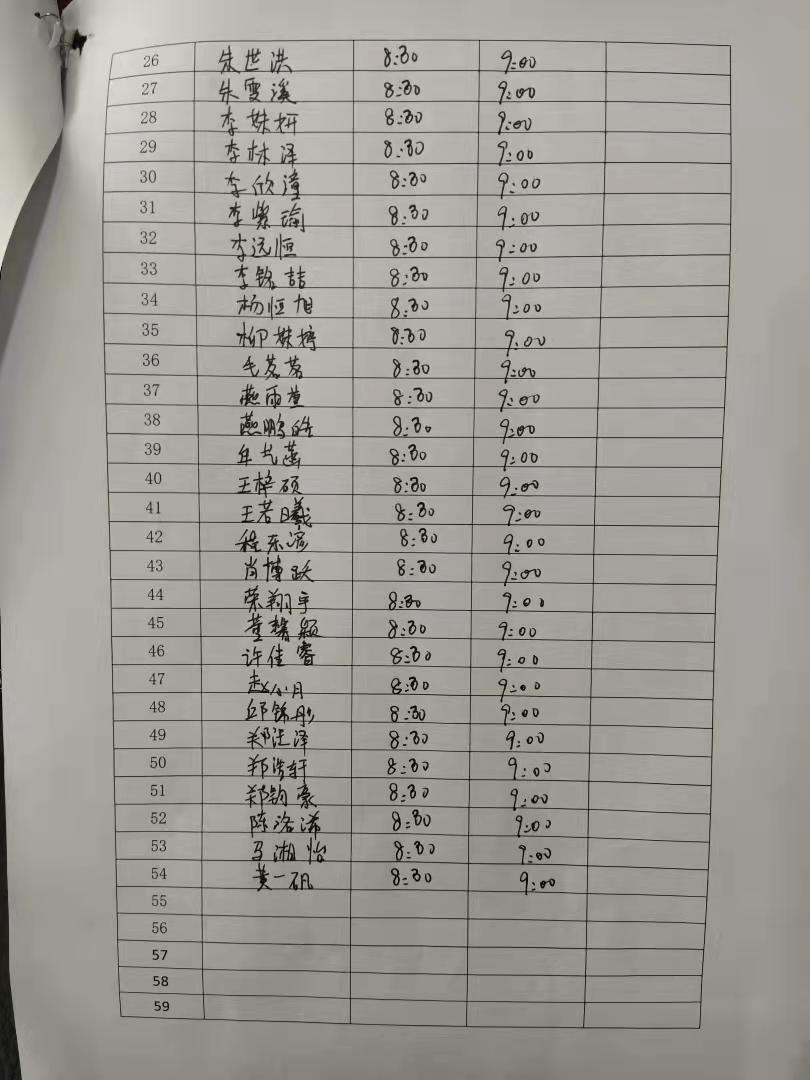 26 朱世洪 8:30 9:00
27 朱雯溪 8:30 9:00
28 李姝妍 8:30 9:00
29 李林泽 8:30 9:00
30 李欣潼 8:30 9:00
31 李紫瑜 8:30 9:00
32 李远恒 8:30 9:00
33 李铭喆 8:30 9:00
34 杨恒旭 8:30 9:00
35 柳姝婷 8:30 9:00
36 毛茗茗 8:30 9:00
37 燕雨萱 8:30 9:00
38 燕鹏皓 8:30 9:00
39 8:30 9:00
40 王梓硕 8:30 9:00
41 王若曦 8:30 9:00
42 程东滨 8:30 9:00
43 肖博跃 8:30 9:00
44 荣翔宇 8:30 9:00
45 董馨颖 8:30 9:00
46 许佳睿 8:30 9:00
47 赵小月 8:30 9:00
48 邱锦彤 8:30 9:00
49 郑泽 8:30 9:00
50 郑浩轩 8:30 9:00
51 郑钧豪 8:30 9:00
52 陈洛浠 8:30 9:00
53 马湘怡 8:30 9:00
54 黄一矾 8:30 9:00
55
56
57
58
59